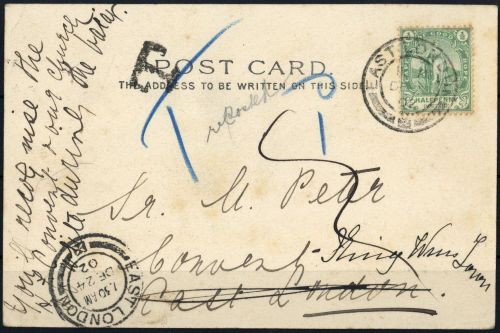 POST CARD
THE ADDRESS TO BE WRITTEN ON THIS SIDE
T
T
5
HALFPENNY
EAST LONDON
Sr. M. Peter
Convent
King Wms Town
East London.
You'll recognise the
Convent
during the
EAST LONDON
1.30 AM
DE 24
02